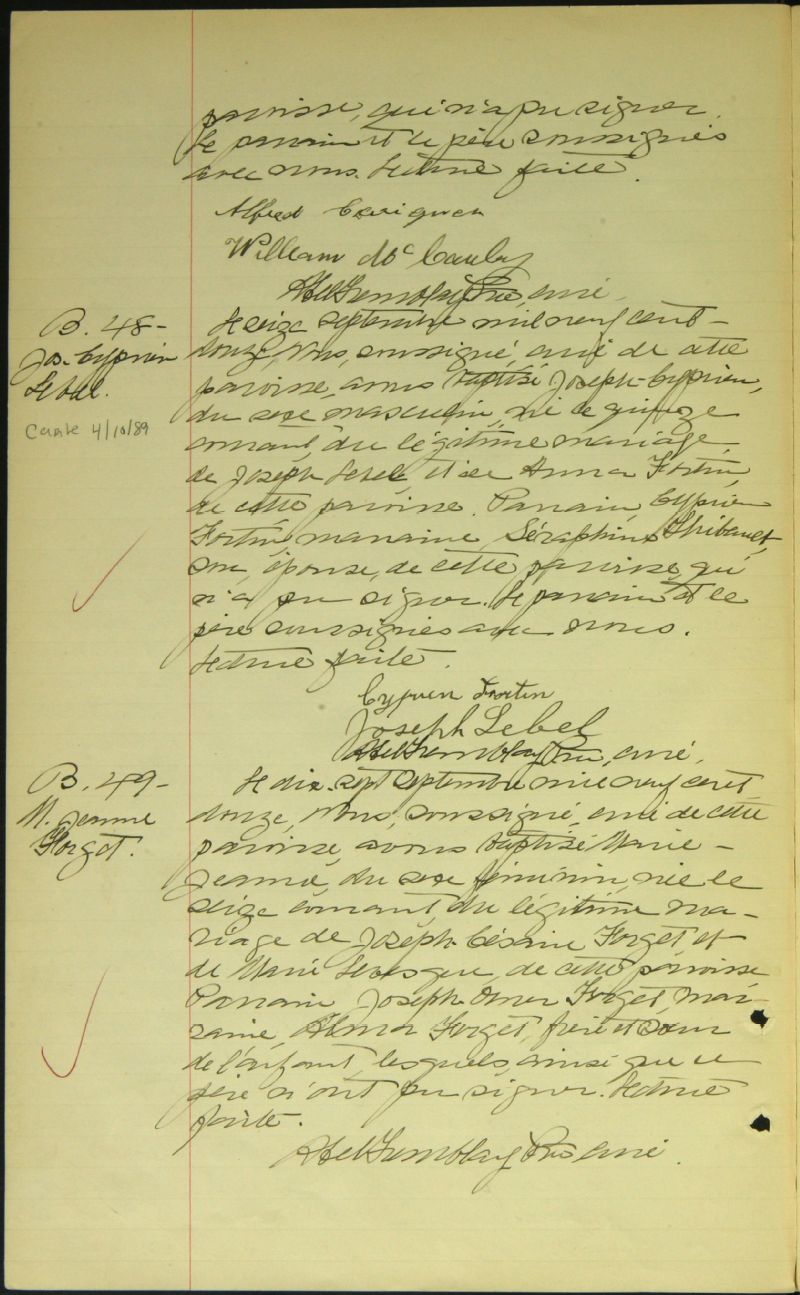 paroisse, qui n'a pu signer.
Le parrain et le père soussignés
avec nous. Lecture faite.
Alfred
William Mc Caulay
Abel Tremblay Ptre, curé.
B. 48-
Jos. Cyprien
Lebel.
Carte 4/10/89
Le seize septembre mil neuf cent-
douze, nous, soussigné, curé de cette
paroisse, avons baptisé Joseph-Cyprien,
du sexe masculin, né le quinze
courant, du légitime mariage
de Joseph Lebel, et de Anna Fortin,
de cette paroisse. Parrain, Cyprien
Fortin, marraine, Séraphine Thibault,
son, épouse, de cette paroisse, qui
n'a pu signer. Le parrain et le
père soussignés avec nous.
Lecture faite.
Cyprien Fortin
Joseph Lebel
Abel Tremblay Ptre, curé.
B. 49-
M. Jeanne
Forget.
Le dix-sept septembre mil neuf cent
douze, nous, soussigné, curé de cette
paroisse, avons baptisé Marie-
Jeanne, du sexe féminin, née le
seize courant, du légitime ma-
riage de Joseph-Césaire Forget et
de Marie Levesque, de cette paroisse
Parrain Joseph-Omer Forget, mar-
raine, Alma Forget, frère et sœur
de l'enfant, lesquels, ainsi que le
père n'ont pu signer. Lecture
faite.
Abel Tremblay Ptre curé.